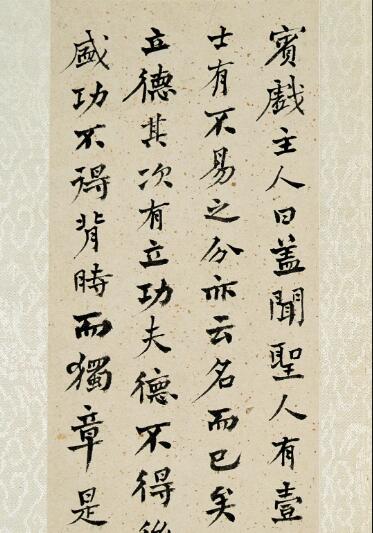 賓戲主人曰盖聞聖人有壹
士有不易之分亦云名而已矣
立德其次有立功夫德不得後
盛功不得背時而獨章是